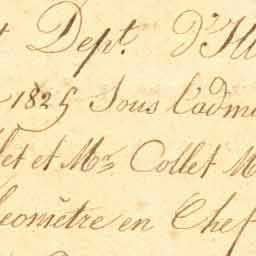 Dept. d'Ill
1825 Sous l'adm
let et Mr. Collet M
éomètre en Chef